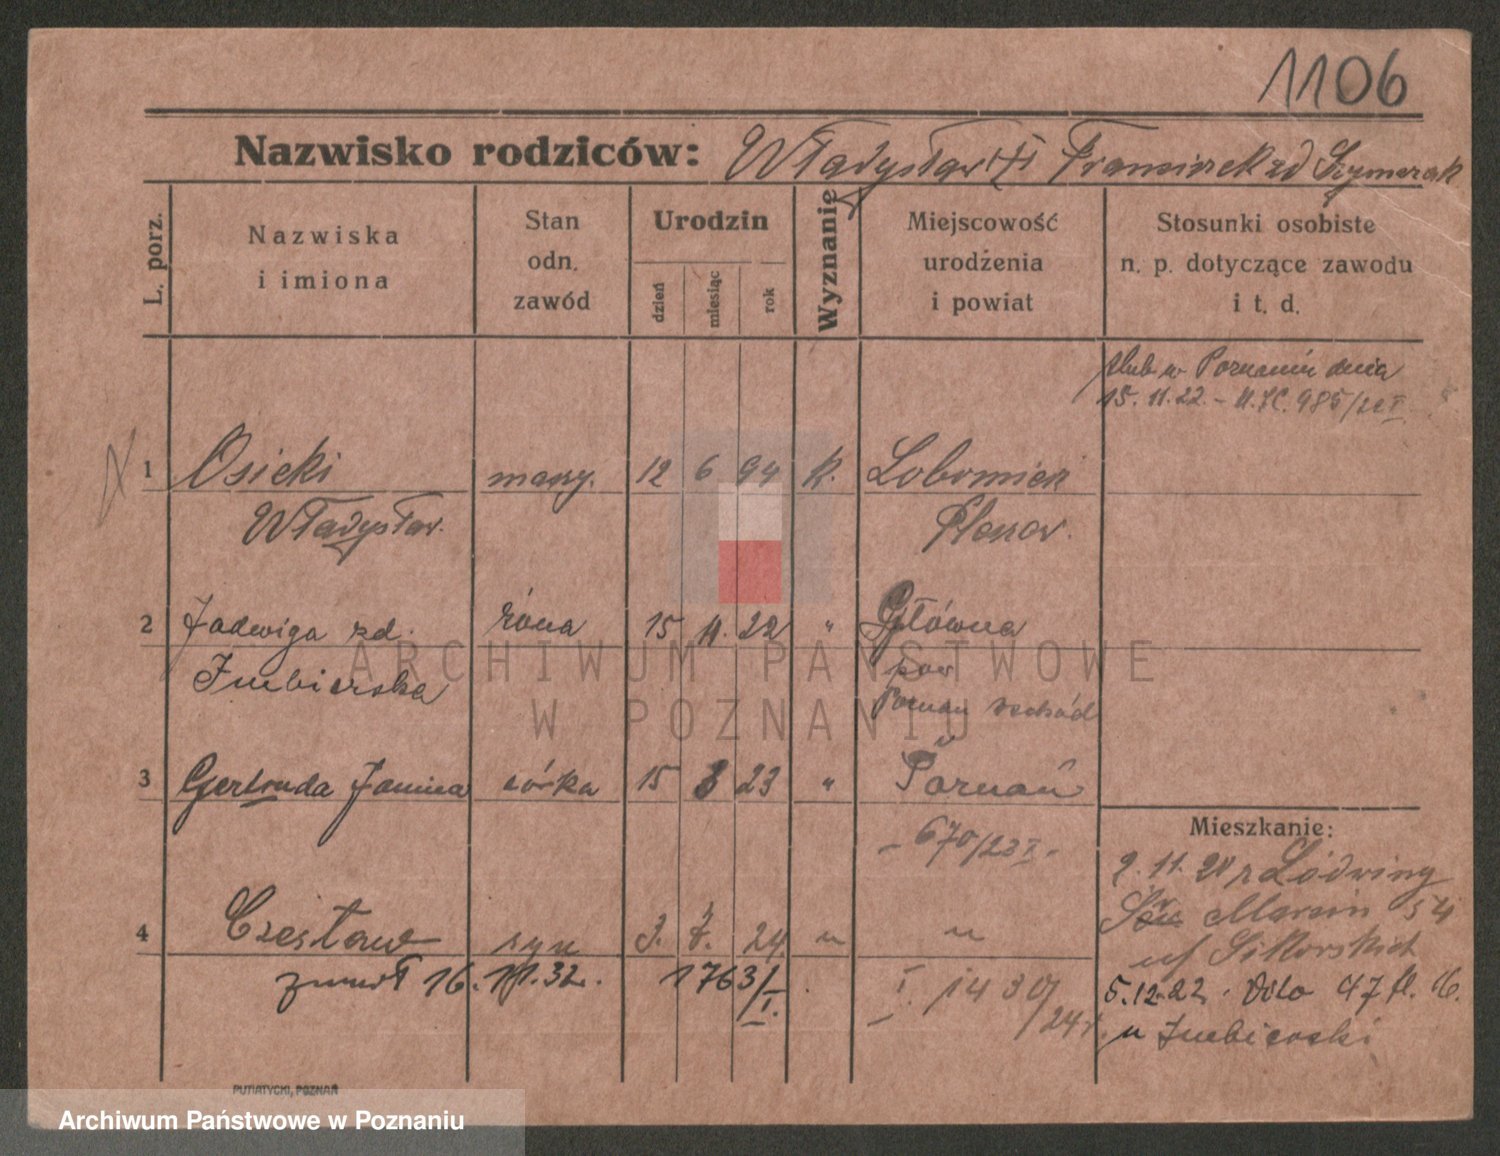 1106
Nazwisko rodziców: Władysław Franciszka zd Szymczak
L. porz.
Nazwiska
i imiona
Stan
odn.
zawód
Urodzin
dzień
miesiąc
rok
Wyznanie
Miejscowość
urodzenia
i powiat
Stosunki osobiste
n. p. dotyczące zawodu
i t. d.
ślub w Poznaniu dnia
15. 11. 22. 985/22 I
1 Osicki mąż. 12 6 94 k.
Władysław.
2 Jadwiga zd. żona 15 11. 22 " Główna
Imbierska pow
Poznań wschód
3 Gertruda Janina córka 15 8 23 " Poznań
- 670/23 I -
Mieszkanie:
4 Czesław syn 3. 7. 24. " "
zmarł 16. 32. 1763/I. I. 1430/24
Marcin 54
Sikorskich
5.12.22. dito 47
u Imbierski
PUTIATYCKI, POZNAŃ
ARCHIWUM PAŃSTWOWE
W POZNANIU
Archiwum Państwowe w Poznaniu